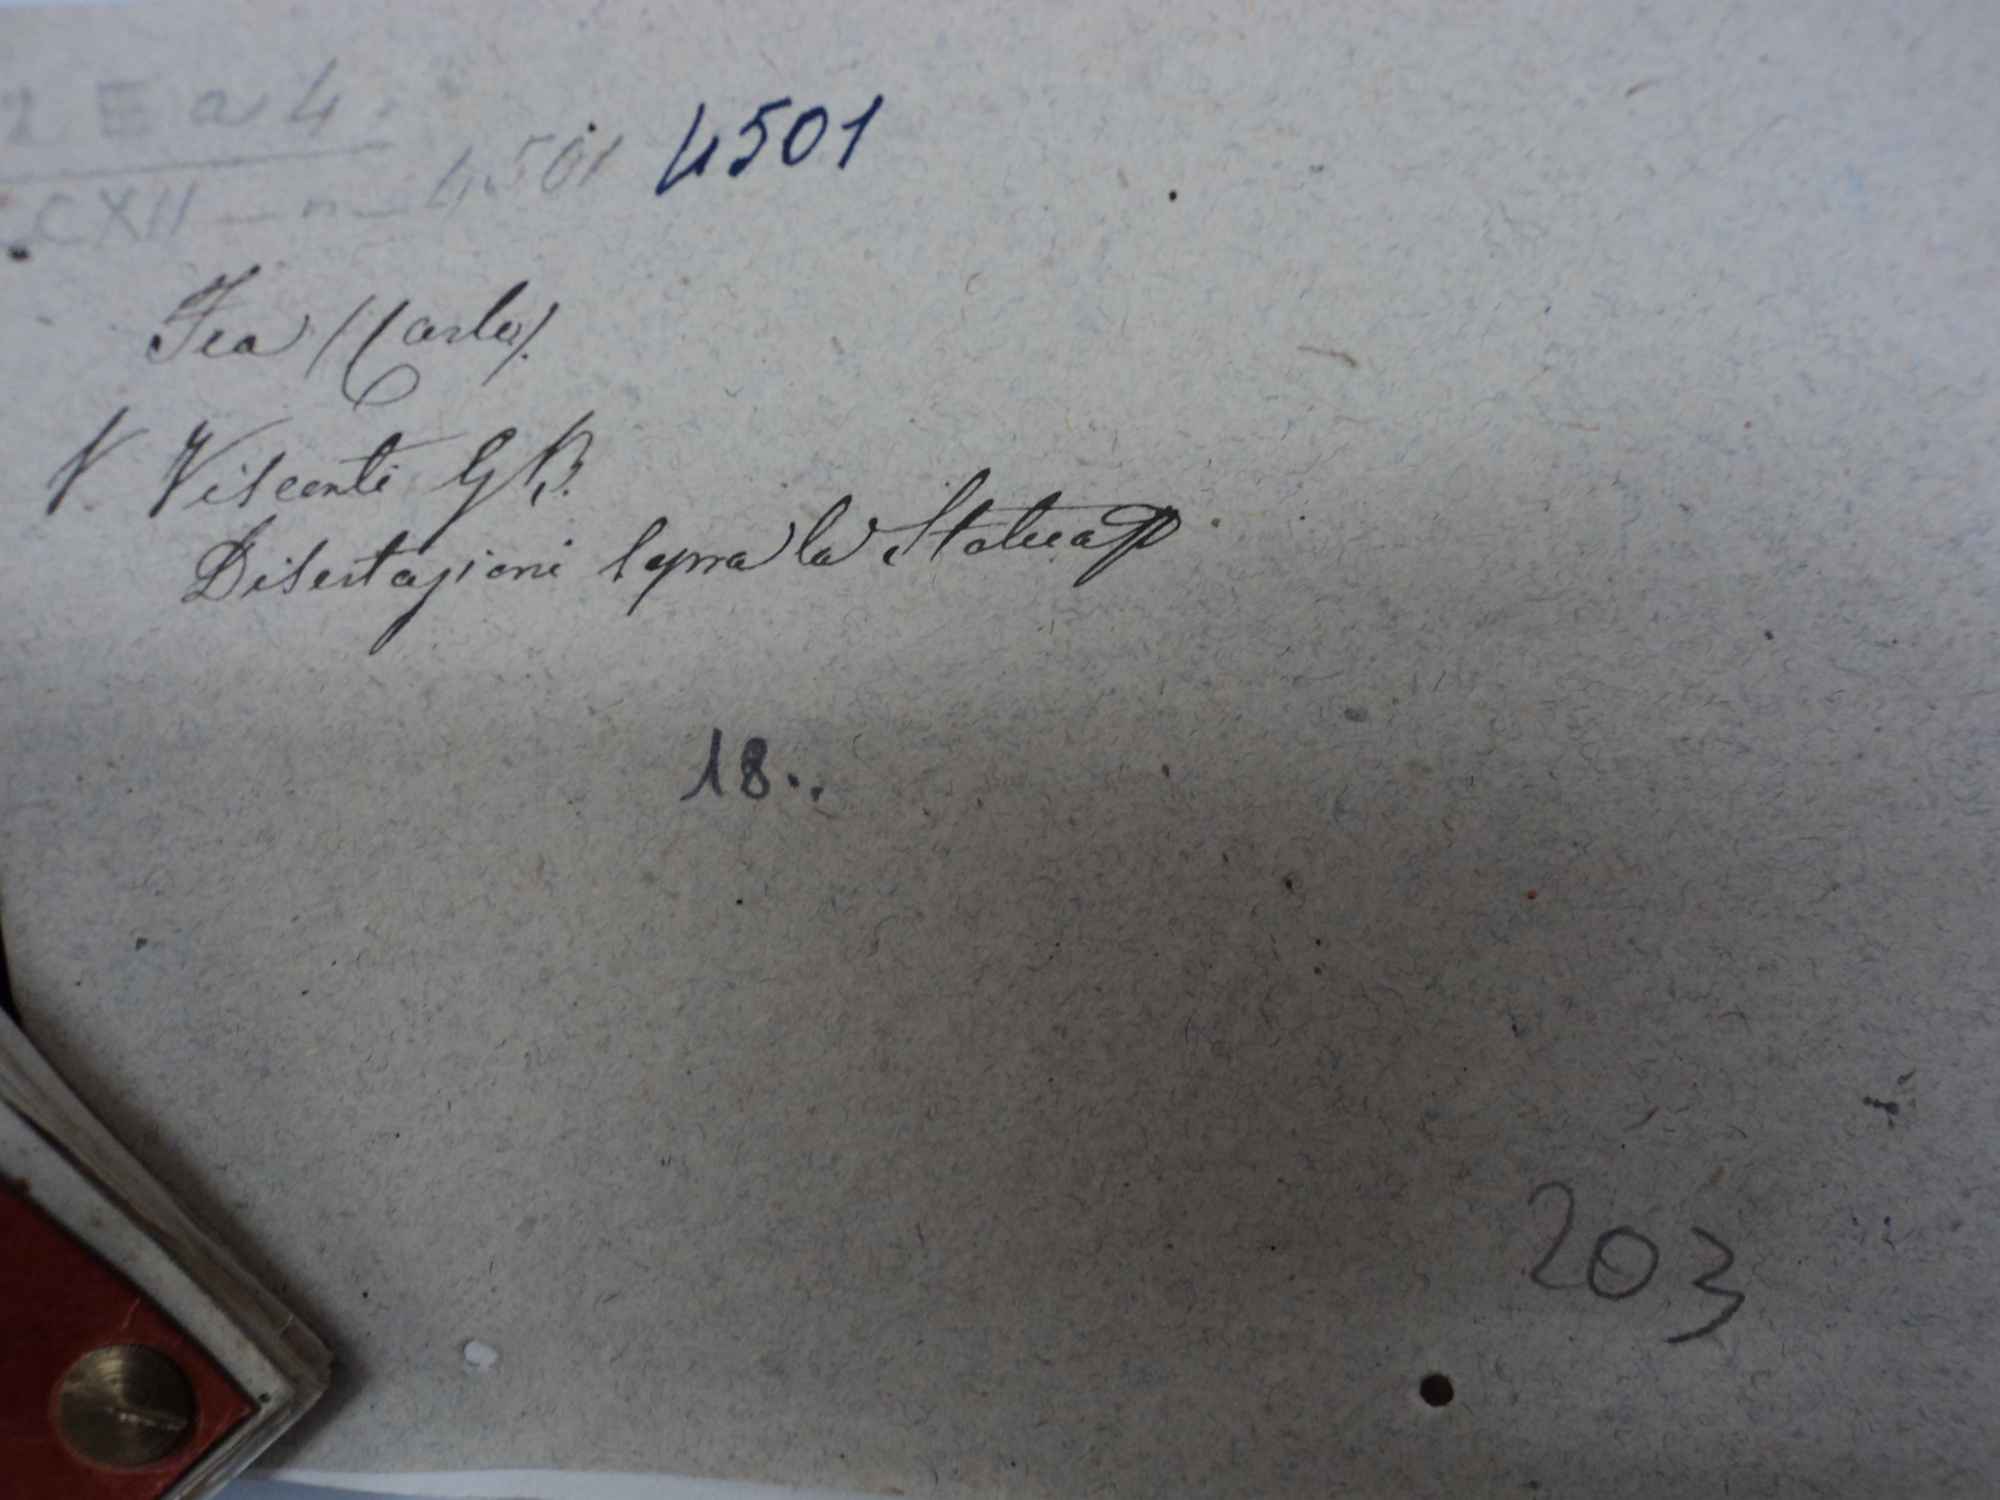 2 E a 4.
CXII — n — 4501 4501
Fea (Carlo).
V. Visconti G B.
Disertazioni sopra la Statua
18..
203